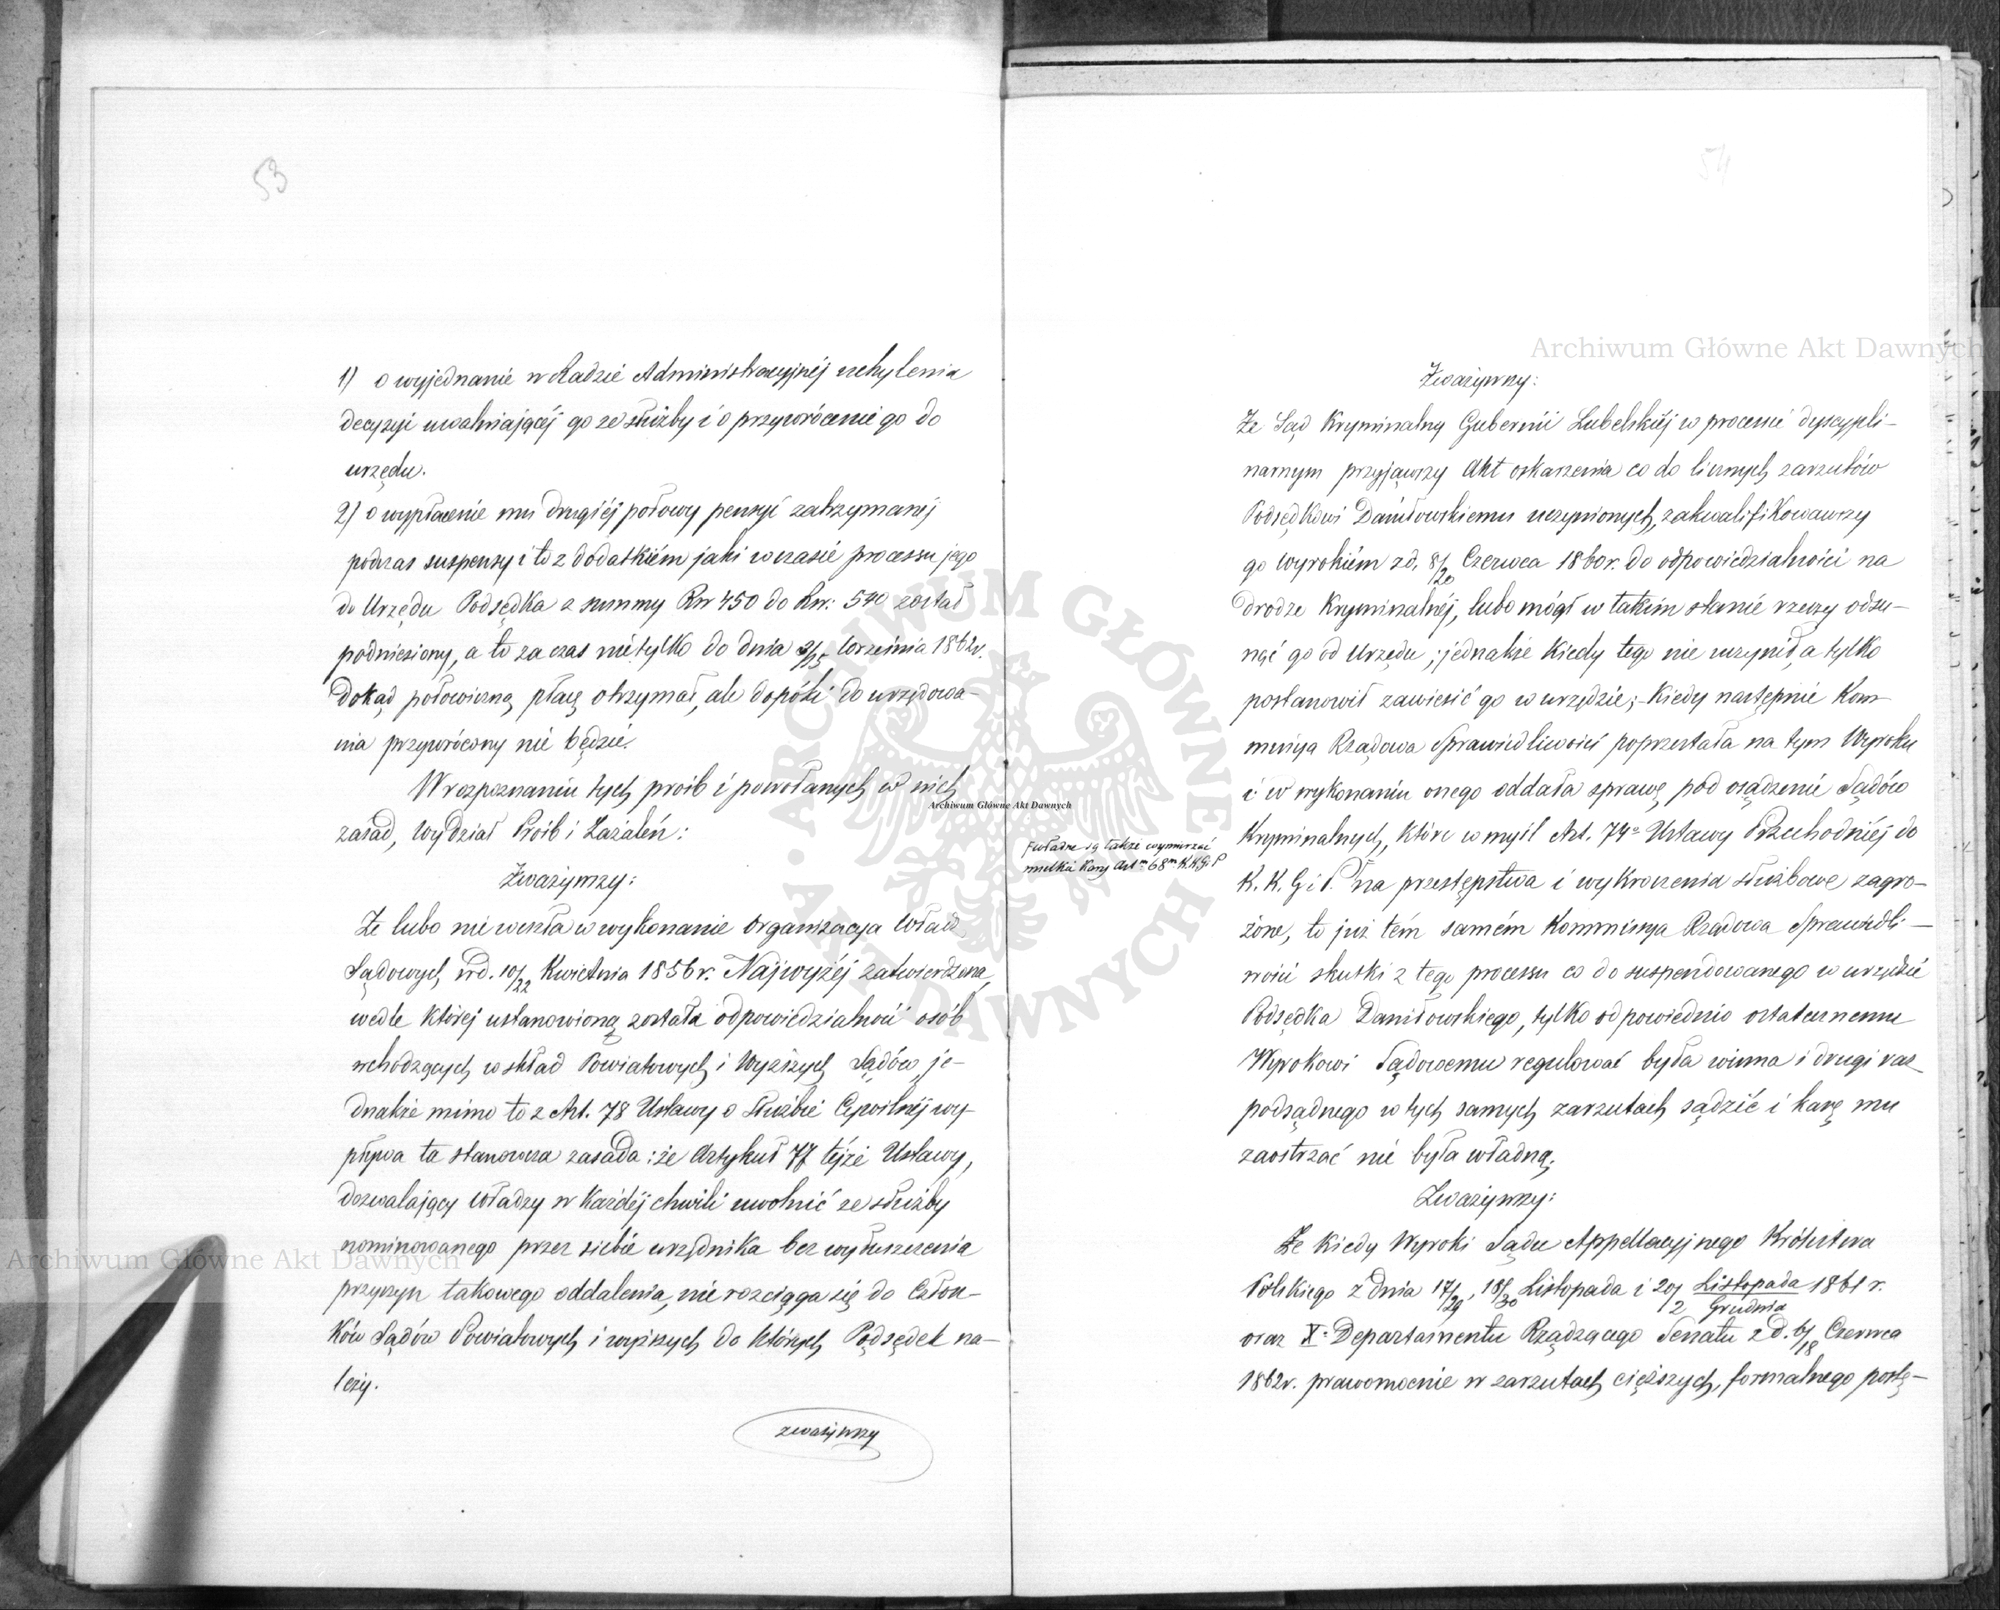 53
1) o wyjednanie w Radzie Administracyjnéj uchylenia
decyzyi uwalniającéj go ze służby i o przywrócenie go do
urzędu.
2) o wypłacenie mu drugiéj połowy pensyi zatrzymanéj
podczas suspensy i to z dodatkiém jaki w czasie processu jego
do Urzędu Podsędka z summy Rsr 450 do Rsr: 540 został
podniesiony, a to za czas nietylko do dnia 3/15 Września 1862 r.
dokąd połowiczną płacę otrzymał, ale dopóki do urzędowa-
nia przywrócony nie będzie.
W rozpoznaniu tych prośb i powołanych w nich
zasad, Wydział Prośb i Zażaleń:
Zważywszy:
Że lubo nie weszła w wykonanie Organizacyja Władz
Sądowych, w d. 10/22 Kwietnia 1856 r. Najwyżéj zatwierdzona,
wedle któréj ustanowioną została odpowiedzialność osób
wchodzących w skład Powiatowych i Wyższych Sądów, je-
dnakże mimo to z Art. 78 Ustawy o Służbie Cywilnéj wy-
pływa ta stanowcza zasada: że Artykuł 77 téjże Ustawy,
dozwalający Władzy w każdéj chwili uwolnić ze służby
nominowanego przez siebie urzędnika bez wyłuszczenia
przyczyn takowego oddalenia, nie rozciąga się do Człon-
ków Sądów Powiatowych i wyższych do których Podsędek na-
leży.
zważywszy
54
Zważywszy:
Że Sąd Kryminalny Gubernii Lubelskiéj w procesie dyscypli-
narnym przyjąwszy Akt oskarżenia co do licznych zarzutów
Podsędkowi Daniłowskiemu uczynionych, zakwalifikowawszy
go Wyrokiém z d. 8/20 Czerwca 1860 r. do odpowiedzialności na
drodze Kryminalnéj, lubo mógł w takim stanie rzeczy odsu-
nąć go od Urzędu; jednakże kiedy tego nie uczynił, a tylko
postanowił zawiesić go w urzędzie; - kiedy następnie Kom-
missya Rządowa Sprawiedliwości poprzestała na tym Wyroku
i w wykonaniu onego oddała sprawę pod osądzenie Sądów
Kryminalnych, które w myśl Art. 74 Ustawy Przechodniéj do
K. K. G i P. na przestępstwa i wykroczenia służbowe zagro-
żone, to już tém samém Kommissya Rządowa Sprawiedli-
wości skutki z tego processu co do suspendowanego w urzędzie
Podsędka Daniłowskiego, tylko odpowiednio ostatecznemu
Wyrokowi Sądowemu regulować była winna i drugi raz
podsądnego w tych samych zarzutach sądzić i karę mu
zaostrzać nie była władną;
władne są także wymierzać
wszelkie kary Artm 68m K.K.G.i P
Zważywszy:
Że kiedy Wyroki Sądu Appellacyjnego Królestwa
Polskiego z dnia 17/29, 18/30 Listopada i 20/2 Listopada/Grudnia 1861 r.
oraz X. Departamentu Rządzącego Senatu z d. 6/18 Czerwca
1862 r. prawomocnie w zarzutach cięższych, formalnego postę-
Archiwum Główne Akt Dawnych
Archiwum Główne Akt Dawnych
Archiwum Główne Akt Dawnych
ARCHIWUM GŁÓWNE AKT DAWNYCH